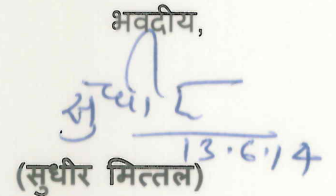 भवदीय,
सुधीर
13.6.14
(सुधीर मित्तल)